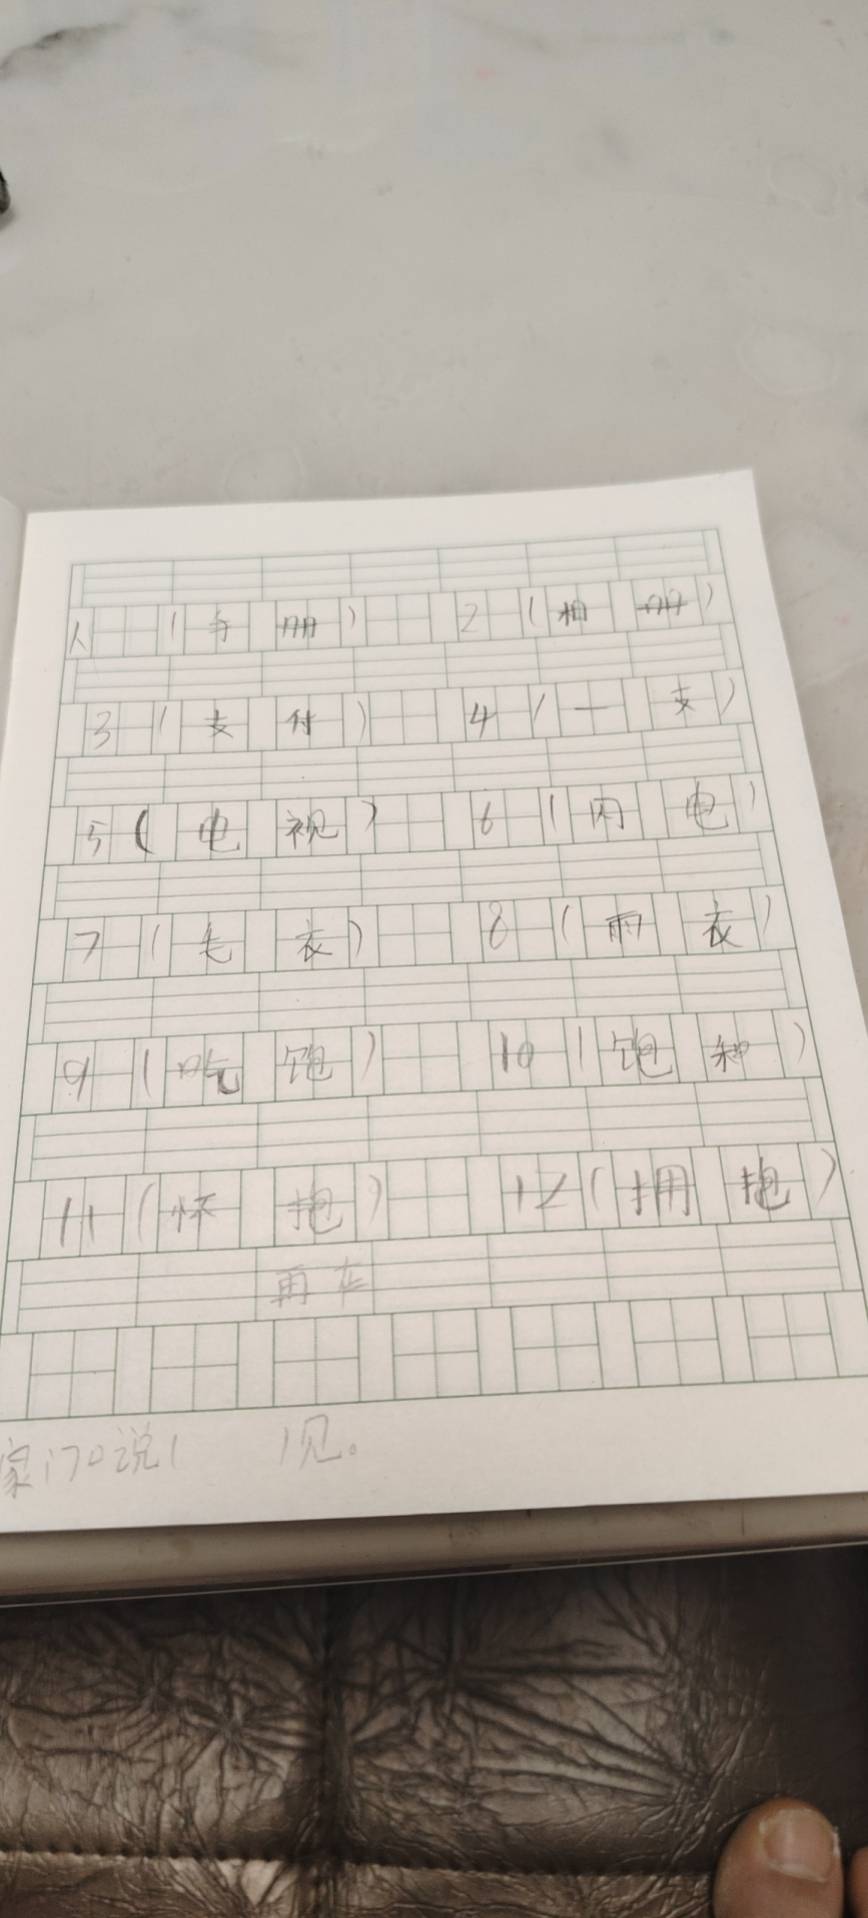 1 （手册） 2 （相册）
3 （支付） 4 （一支）
5 （电视） 6 （闪电）
7 （毛衣） 8 （雨衣）
9 （吃饱） 10 （饱和）
11 （怀抱） 12 （拥抱）
再在
家门口说（ ）见。